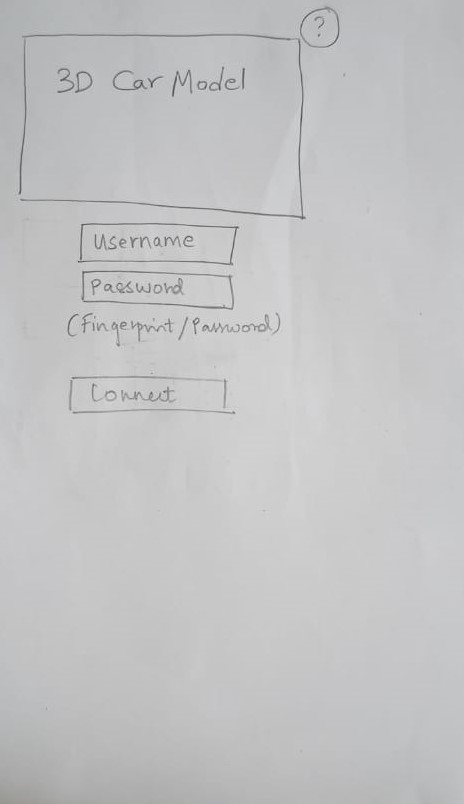 ?
3D Car Model
Username
Password
(Fingerprint/Password)
Connect